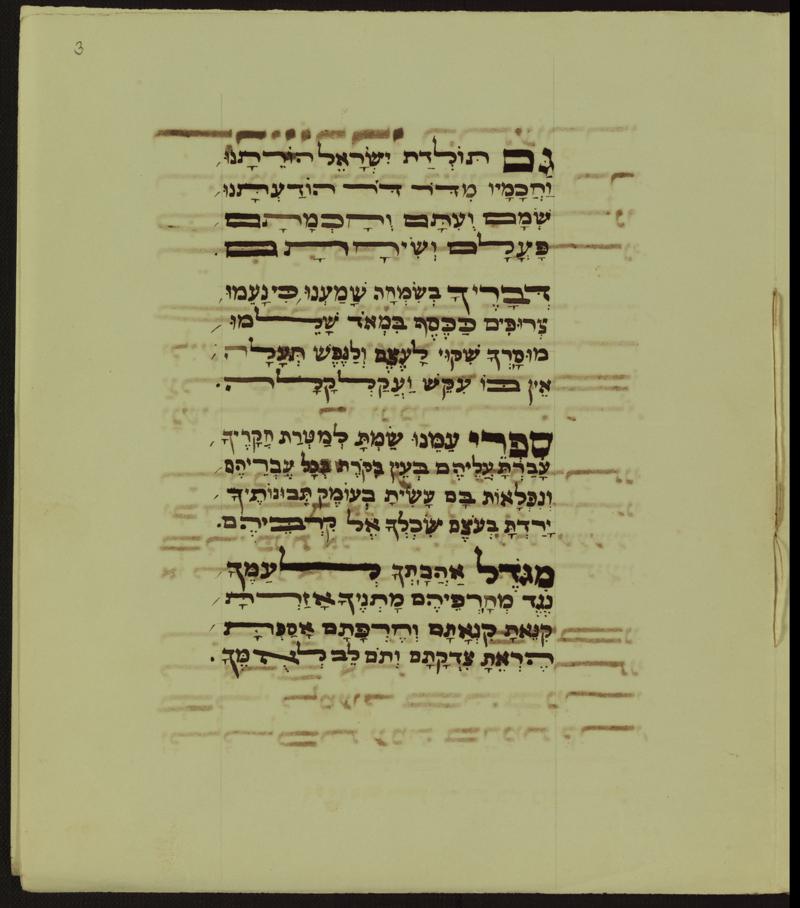 3
גַּם תּוֹלְדַת יִשְׂרָאֵל הוֹרֵתָנוּ,
וַחֲכָמָיו מִדּוֹר דּוֹר הוֹדַעְתָּנוּ,
שְׁמָם וְעִתָּם וְחָכְמָתָם,
פָּעֳלָם וְשִׁירָתָם.
דְּבָרֶיךָ בְּשִׂמְחָה שָׁמַעְנוּ, כִּי נָעֵמוּ,
צְרוּפִים כַּכֶּסֶף בִּמְאֹד שָׁלֵמוּ,
מוּסָרְךָ שִׁקּוּי לָעֶצֶם וְלַנֶּפֶשׁ תְּעָלָה,
אֵין בּוֹ עִקֵּשׁ וַעֲקַלְקַלָּה.
סִפְרֵי עַמֵּנוּ שַׂמְתָּ לְמַטְּרַת חֲקָרֶיךָ,
עָבַרְתָּ עֲלֵיהֶם בְּעֵין בִּקֹּרֶת בְּכָל עֲבָרֵיהֶם
וְנִפְלָאוֹת בָּם עָשִׂיתָ בְּעוֹמֶק תְּבוּנוֹתֶיךָ,
יָרַדְתָּ בְּעֹצֶם שִׂכְלְךָ אֶל קִרְבֵיהֶם.
מִגֹּדֶל אַהֲבָתְךָ לְעַמֶּךָ
נֶגֶד מְחָרְפֵיהֶם מָתְנֶיךָ אָזַרְתָּ,
קִנֵּאתָ קִנְאָתָם וְחֶרְפָּתָם אָסַפְתָּ,
הֶרְאֵתָ צִדְקָתָם וְתֹם לֵב לְאֻמֶּךָ.